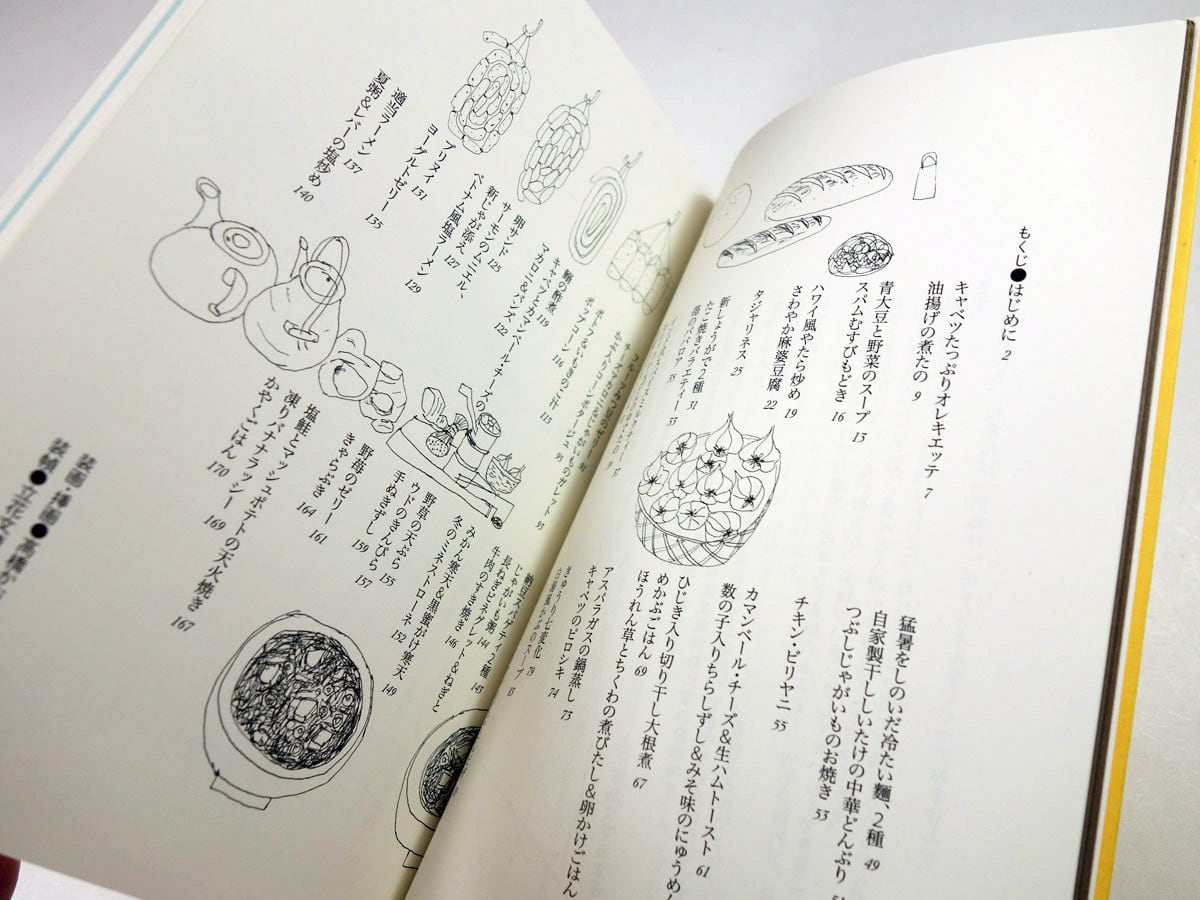 もくじ●はじめに 2
キャベツたっぷりオレキエッテ 7
油揚げの煮たの 9
青大豆と野菜のスープ 13
スパムむすびもどき 16
ハワイ風やたら炒め 19
さわやか麻婆豆腐 22
タジャリネス 25
新しょうがで2種 31
たこ焼きバラエティー 33
苺のババロア 35
猛暑をしのいだ冷たい麺、2種 49
自家製干ししいたけの中華どんぶり
つぶしじゃがいものお焼き 53
チキン・ビリヤニ 55
カマンベール・チーズ&生ハムトースト 61
数の子入りちらしずし&みそ味のにゅうめん
ひじき入り切り干し大根煮 67
めかぶごはん 69
ほうれん草とちくわの煮びたし&卵かけごはん
アスパラガスの鍋蒸し 73
キャベツのピロシキ 74
きゅうり七変化 79
フルーツみつ豆のゼリー 91
チーズマカロニ&じゃがいものガレット 93
かぶ入りコーンポタージュ 95
ポトフ&いもきのこ汁 113
ポップコーン 116
鰯の酢煮 119
キャベツとカマンベールチーズの
マカロニ&バンズ 122
卵サンド 125
サーモンのムニエル、
新じゃが添え 127
ベトナム風塩ラーメン 129
ブリヌイ 131
ヨーグルトゼリー 135
適当ラーメン 137
夏粥&レバーの塩炒め 140
納豆スパゲティ2種 143
じゃがいも粥 144
長ねぎビネグレット&ねぎと
牛肉のすき焼き 146
みかん寒天&黒蜜がけ寒天 149
冬のミネストローネ 152
野草の天ぷら 155
ウドのきんぴら 157
手ぬきずし 159
野苺のゼリー 161
きゃらぶき 164
塩鮭とマッシュポテトの天火焼き 167
凍りバナナラッシー 169
かやくごはん 170
装画・挿画●高橋か
装幀●立花文